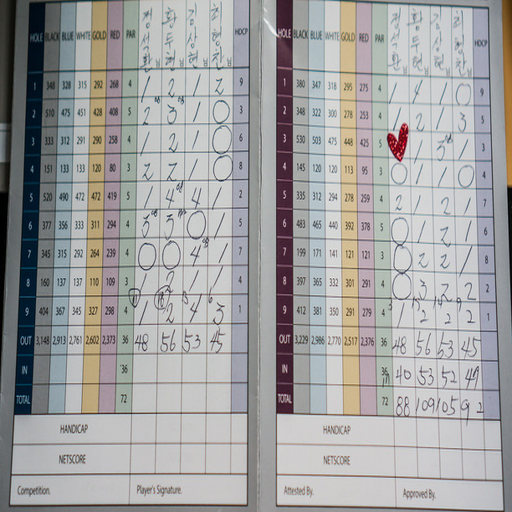 HOLE BLACK BLUE WHITE GOLD RED PAR HDCP
1 348 328 315 292 268 4 1 2 1 2 9
2 510 475 451 428 408 5 2 3 1 0 3
3 333 312 291 290 258 4 1 2 1 0 6
4 151 133 133 120 80 3 2 2 1 0 8
5 520 490 472 472 419 5 1 4 4 1 2
6 377 356 333 311 294 4 3 3 0 1 5
7 345 315 292 264 239 4 0 0 4 1 7
8 160 137 137 110 109 3 1 2 1 4
9 404 367 345 327 298 4 1 2 4 3 1
OUT 3,148 2,913 2,761 2,602 2,373 36 48 56 53 45
IN 36
TOTAL 72
HANDICAP
NETSCORE
Competition. Player's Signature.
HOLE BLACK BLUE WHITE GOLD RED PAR HDCP
1 380 347 318 295 275 4 1 4 1 0 9
2 348 322 300 278 253 4 1 2 1 3 5
3 530 503 475 448 425 5 1 3 1 3
4 145 120 120 113 95 3 0 1 1 0 4
5 335 312 294 278 259 4 2 1 2 1 7
6 483 465 440 392 378 5 0 1 2 1 6
7 199 171 141 121 121 3 0 2 2 1 8
8 397 365 332 301 291 4 0 3 2 2 2
9 412 381 350 291 279 4 1 2 2 2 1
OUT 3,229 2,986 2,770 2,517 2,376 36 48 56 53 45
IN 36 40 53 52 47
TOTAL 72 88 109 105 92
HANDICAP
NETSCORE
Attested By. Approved By.